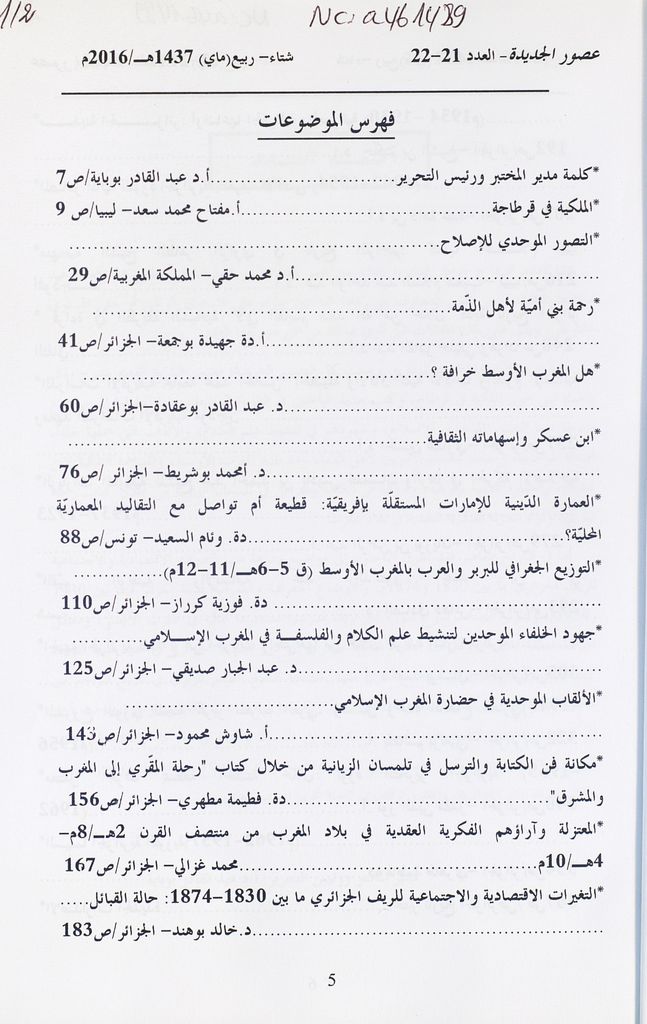 1/2
Nc: a461489
عصور الجديدة- العدد 21-22 شتاء- ربيع(ماي) 1437هـ/2016م
فهرس الموضوعات
*كلمة مدير المختبر ورئيس التحرير..............................أ.د عبد القادر بوباية/ص7
*الملكية في قرطاجة........................................أ.مفتاح محمد سعد- ليبيا/ص 9
*التصور الموحدي للإصلاح.......................................................
.........................................أ.د محمد حقي- المملكة المغربية/ص29
*رحمة بني أميّة لأهل الذّمة.......................................................
...............................................أ.دة جهيدة بوجمعة- الجزائر/ص41
*هل المغرب الأوسط خرافة ؟.......................................................
...........................................د. عبد القادر بوعقادة-الجزائر/ص60
*ابن عسكر وإسهاماته الثقافية.......................................................
...............................................د. أمحمد بوشريط- الجزائر /ص76
*العمارة الدّينية للإمارات المستقلّة بإفريقيّة: قطيعة أم تواصل مع التقاليد المعماريّة
المحليّة؟.................................................دة. وئام السعيد- تونس/ص88
*التوزيع الجغرافي للبربر والعرب بالمغرب الأوسط (ق 5-6هــ/11-12م)................
............................................. دة. فوزية كرراز- الجزائر/ص110
*جهود الخلفاء الموحدين لتنشيط علم الكلام والفلسفــة في المغرب الإســـلامي...........
.........................................د. عبد الجبار صديقي- الجزائر/ص125
*الألقاب الموحدية في حضارة المغرب الإسلامي.......................................
...............................................أ. شاوش محمود- الجزائر/ص143
*مكانة فن الكتابة والترسل في تلمسان الزيانية من خلال كتاب "رحلة المقّري إلى المغرب
والمشرق".........................................دة. فطيمة مطهري- الجزائر/ص156
*المعتزلة وآراؤهم الفكرية العقدية في بلاد المغرب من منتصف القرن 2هــ/8م-
4هــ/10م.................................................محمد غزالي- الجزائر/ص167
*التغيرات الاقتصادية والاجتماعية للريف الجزائري ما بين 1830-1874: حالة القبائل.....
...............................................د.خالد بوهند- الجزائر/ص183
5